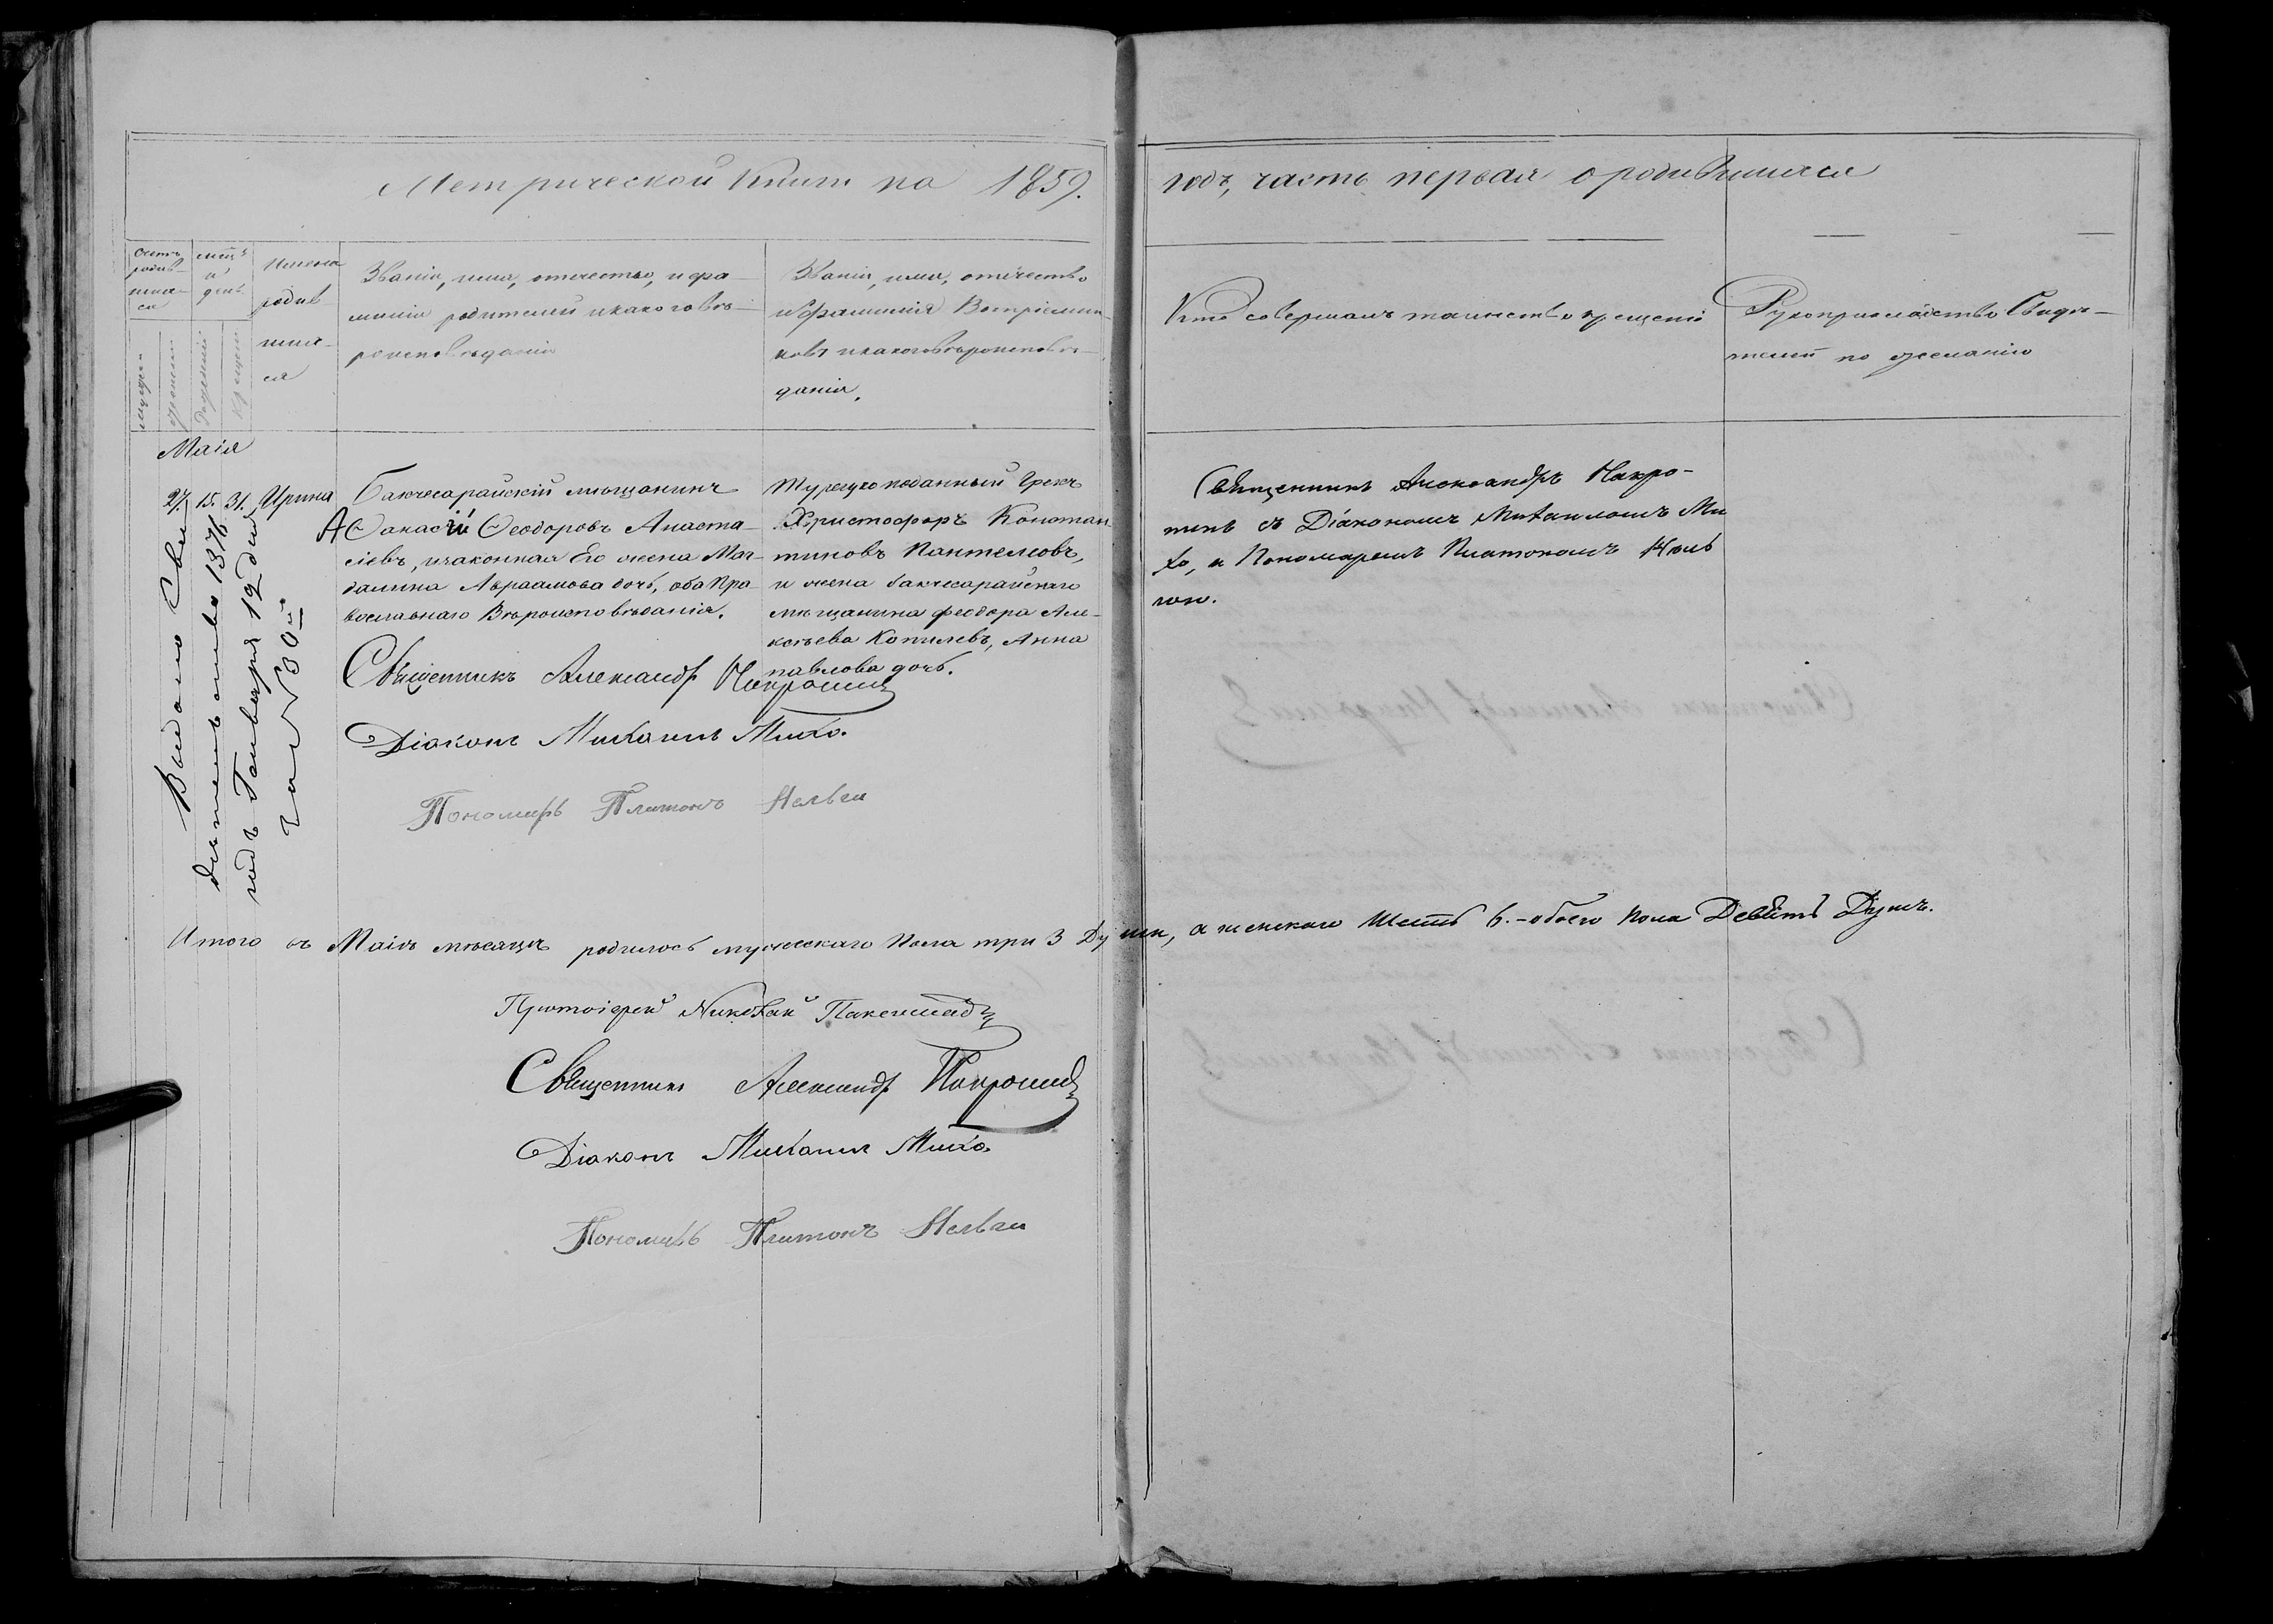 Метрической Книги на 1859.
годъ, часть первая о родившихся
Счетъ родив-шихся
мѣц. и день
Имена родив-шихся
Званіе, имя, отчество, и фа-
милія родителей и какого вѣ-
роисповѣданія
Званіе, имя, отчество
и Фамилія Воспріемни-
ковъ и какого вѣроисповѣ-
данія.
Кто совершалъ таинство крещенія
Рукоприкладство Свидѣ-
телей по желанію
Маія
27. 15. 31. Ирина
Бакчесарайскій мѣщанинъ
Аѳанасій Ѳеодоровъ Анаста-
сіевъ, и законная Его жена Маг-
далина Авраамова дочь, оба Пра-
вославнаго Вѣроисповѣданія.
Турецкоподанный Грекъ
Христофоръ Констан
тиновъ Пантелеовъ,
и жена бакчесарайскаго
мѣщанина феодора Але-
ксѣева Копилевъ, Анна
павлова дочь.
Священникъ Александръ
тинъ съ Діакономъ Михаиломъ Ми
хо, и Пономаремъ Платономъ
Священникъ Александръ
Діаконъ Михаилъ Михо.
Пономарь Платонъ
Видано Сви
дѣтельство 1876
годъ Генваря 12 дня
за № 30й
Итого въ Маіѣ мѣсяцѣ родилось мужескаго пола три 3 Души, а женскаго Шесть 6. - обоего пола Девять Душъ.
Протоіерей Николай
Священникъ Александръ
Діаконъ Михаилъ Михо.
Пономарь Платонъ